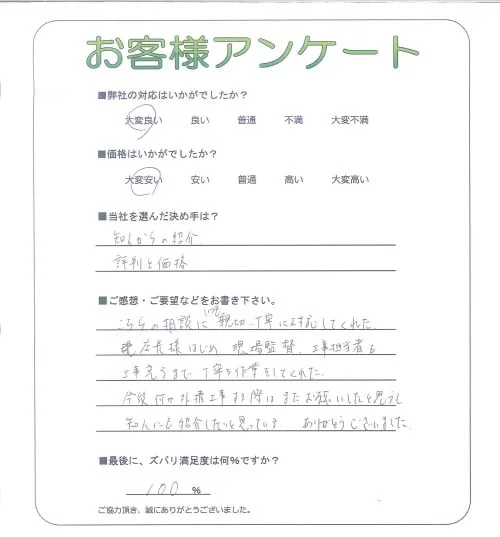 お客様アンケート
■弊社の対応はいかがでしたか？
大変良い 良い 普通 不満 大変不満
■価格はいかがでしたか？
大変安い 安い 普通 高い 大変高い
■当社を選んだ決め手は？
知人からの紹介
評判と価格
■ご感想・ご要望などをお書き下さい。
こちらの相談にいつも親切、丁寧に対応してくれた。
店長様はじめ 現場監督、工事担当者も
工事完了まで 丁寧な作業をしてくれた。
今後何か外構工事する際はまたお願いしたいと思うし
知人にも紹介したいと思っている ありがとうございました。
■最後に、ズバリ満足度は何%ですか？
100 %
ご協力頂き、誠にありがとうございました。